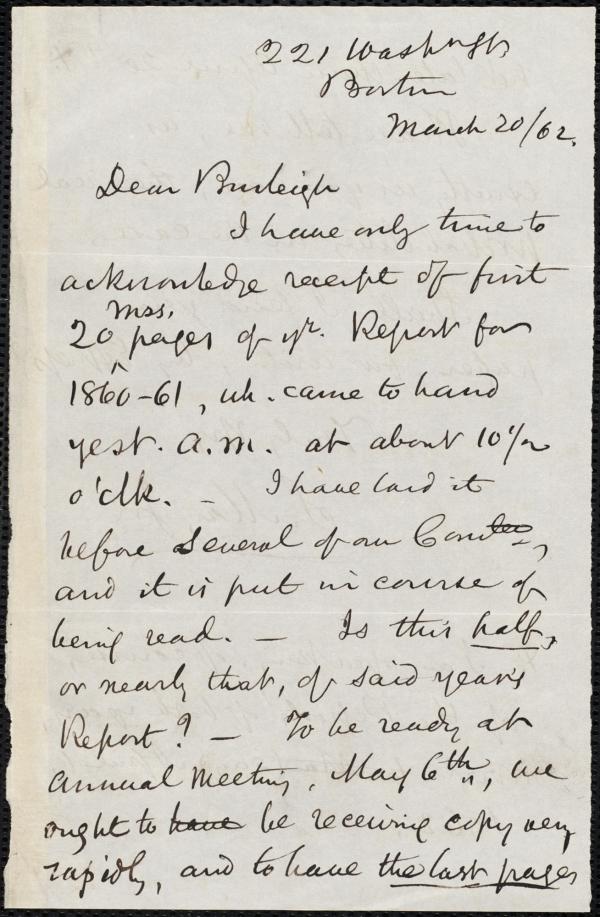 221 Washingtn
Boston
March 20/62.
Dear Burleigh
I have only time to
acknowledge receipt of first
mss.
20 ^ pages of yr. Report for
1860-61, wh. came to hand
yest. a.m. at about 10 1/2
o'clk. - I have laid it
before several of our Comtee,
and it is put in course of
being read. - Is this half,
or nearly that, of said year's
Report? - To be ready at
annual meeting, May 6th, we
ought to have be receiving copy very
rapidly, and to have the last pages